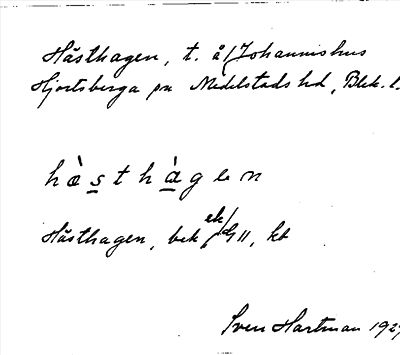 Hästhagen, t. å/Johannishus
Hjortsberga sn Medelstads hd, Blek. l.
hὰs̲t hὰ̲gen
Hästhagen, bek ek/G11, kt
Sven Hartman 192